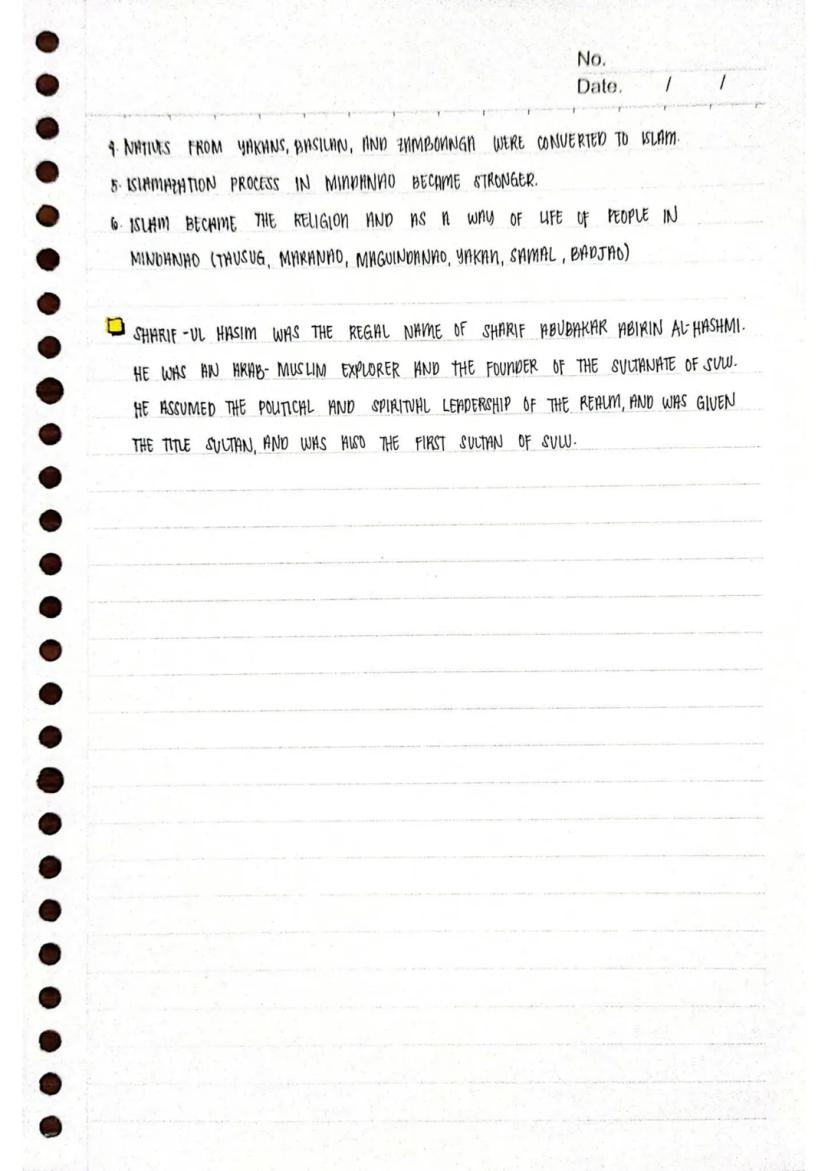 No.
Date. / /
4. NATIVES FROM YAKANS, BASILAN, AND ZAMBOANGA WERE CONVERTED TO ISLAM.
5. ISLAMAZATION PROCESS IN MINDANAO BECAME STRONGER.
6. ISLAM BECAME THE RELIGION AND AS A WAY OF LIFE OF PEOPLE IN
MINDANAO (TAUSUG, MARANAO, MAGUINDANAO, YAKAN, SAMAL, BADJAO)
SHARIF-UL HASIM WAS THE REGAL NAME OF SHARIF ABUBAKAR ABIRIN AL-HASHMI.
HE WAS AN ARAB-MUSLIM EXPLORER AND THE FOUNDER OF THE SULTANATE OF SULU.
HE ASSUMED THE POLITICAL AND SPIRITUAL LEADERSHIP OF THE REALM, AND WAS GIVEN
THE TITLE SULTAN, AND WAS ALSO THE FIRST SULTAN OF SULU.